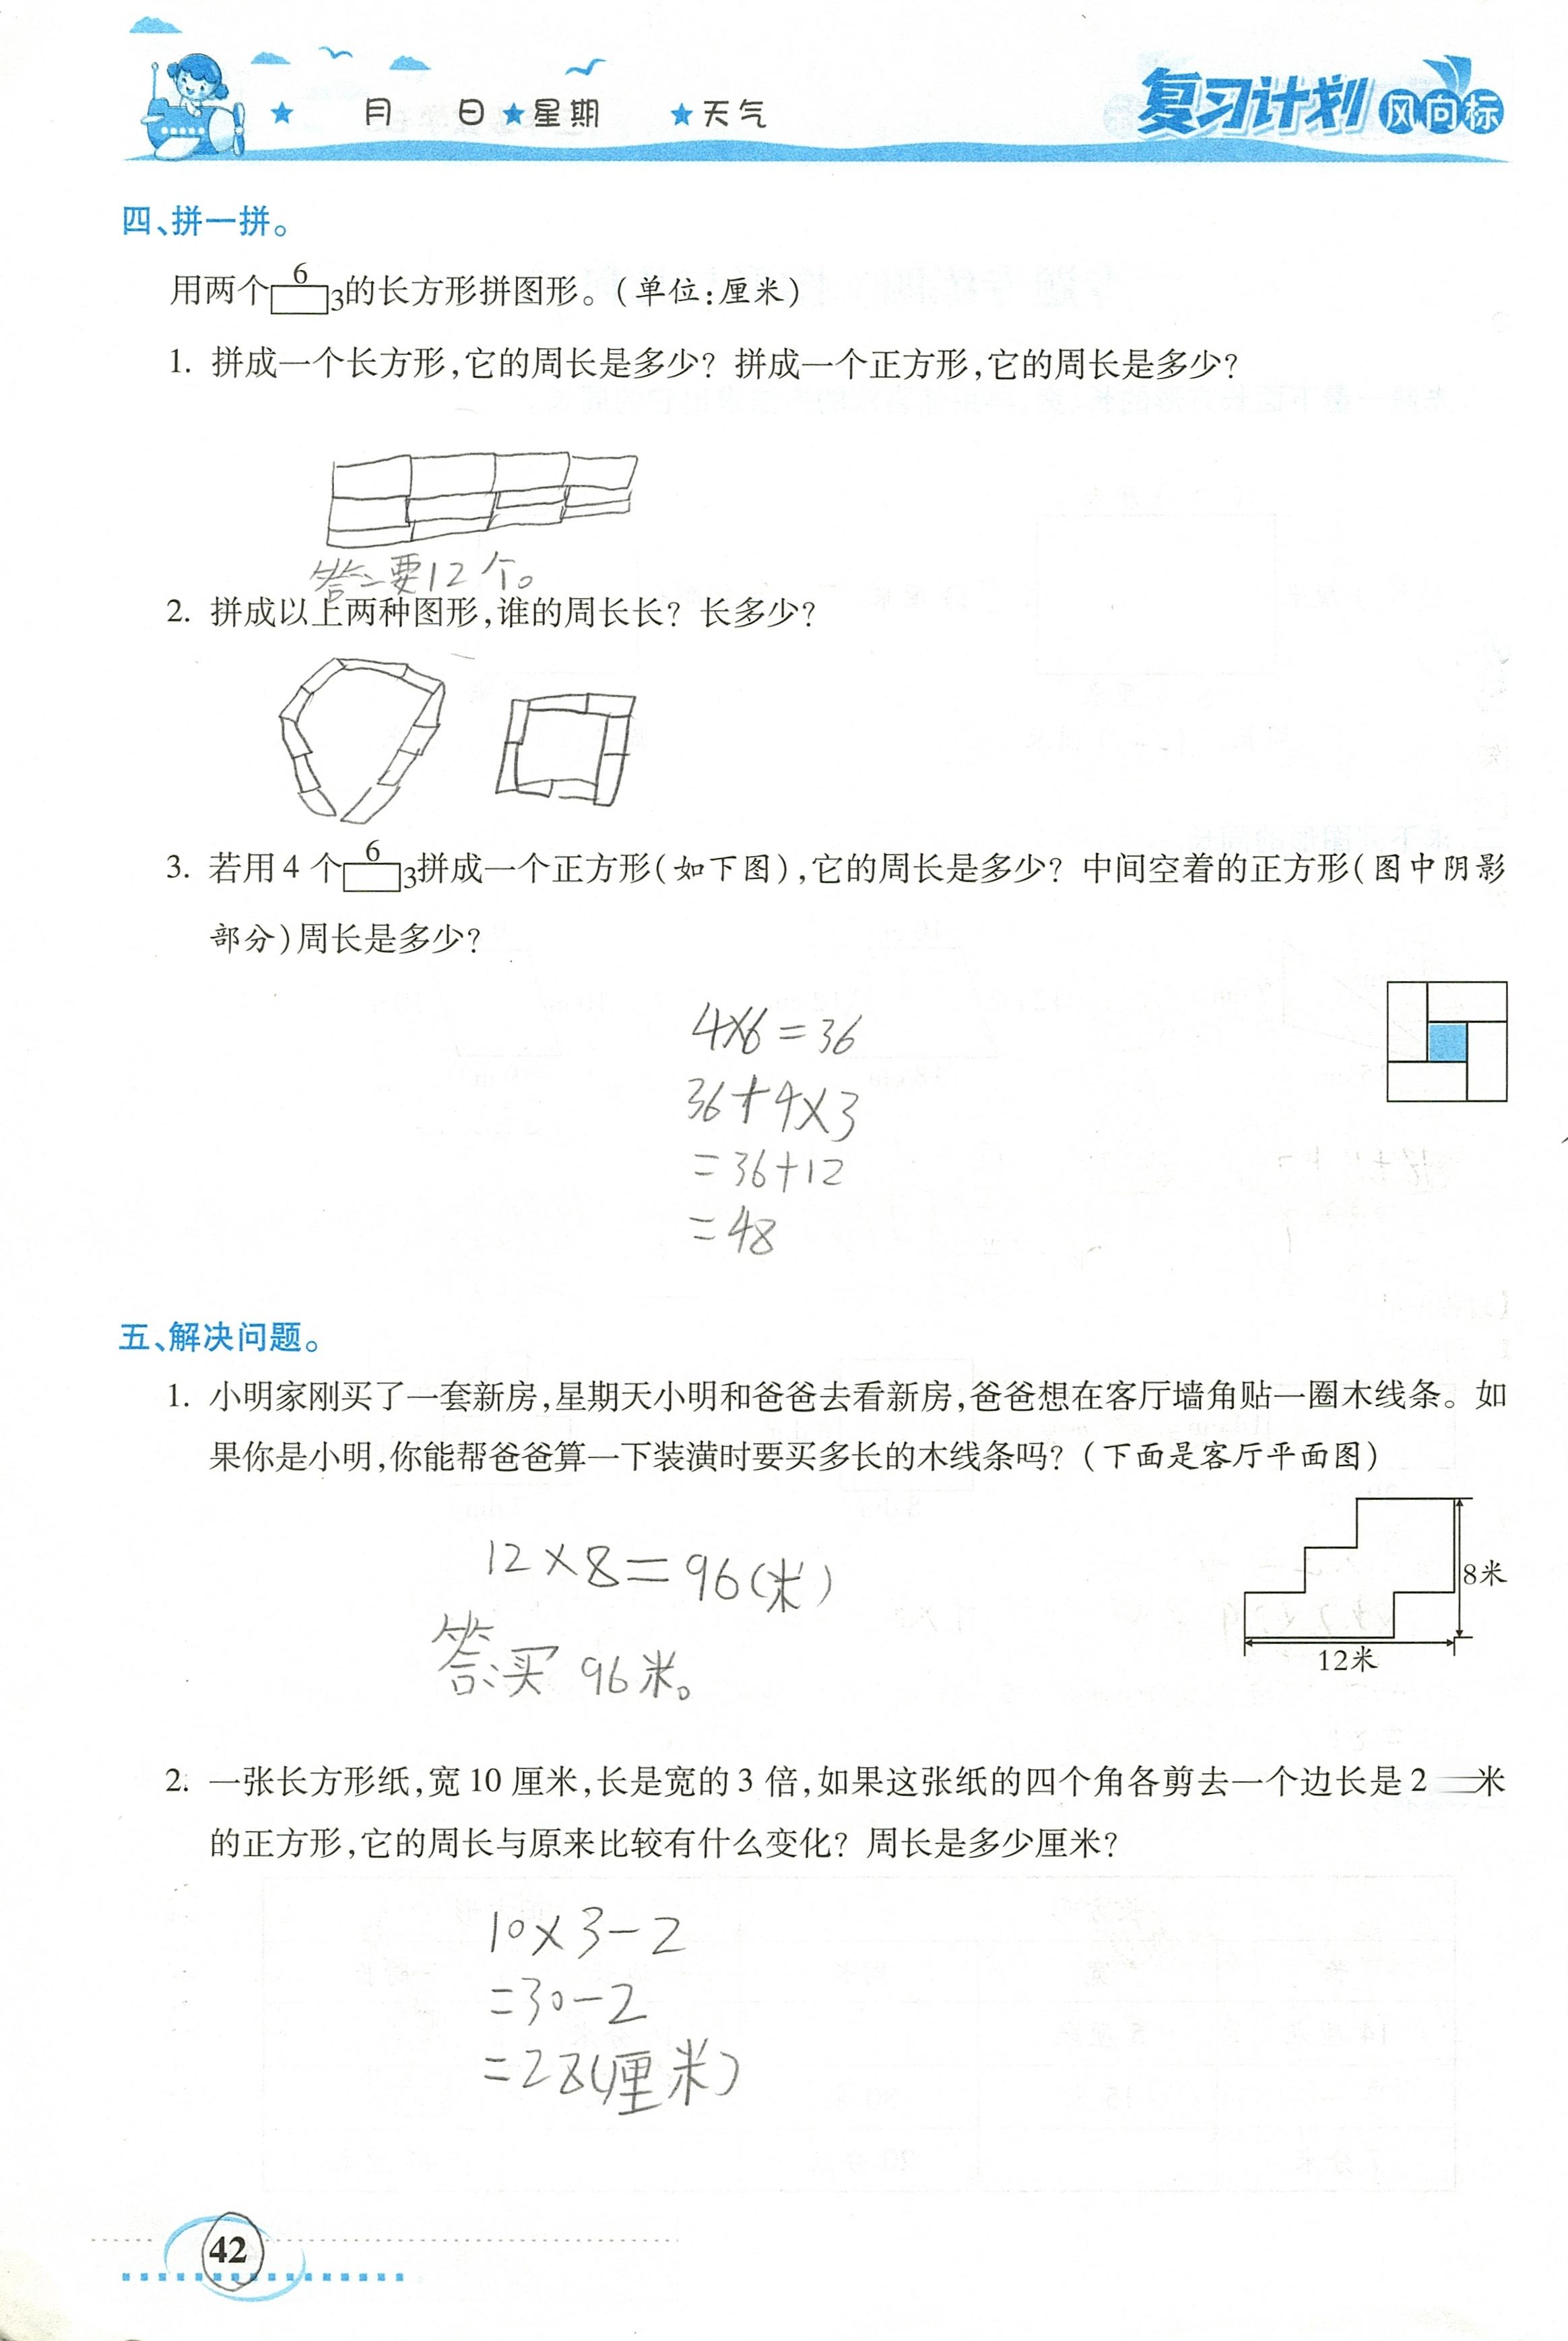 月 日★星期 ★天气
复习计划风向标
四、拼一拼。
6
用两个 3的长方形拼图形。(单位:厘米)
1. 拼成一个长方形,它的周长是多少? 拼成一个正方形,它的周长是多少?
答:要12个。
2. 拼成以上两种图形,谁的周长长? 长多少?
6
3. 若用4个 3拼成一个正方形(如下图),它的周长是多少? 中间空着的正方形(图中阴影
部分)周长是多少?
4×6=36
36+4×3
=36+12
=48
五、解决问题。
1. 小明家刚买了一套新房,星期天小明和爸爸去看新房,爸爸想在客厅墙角贴一圈木线条。如
果你是小明,你能帮爸爸算一下装潢时要买多长的木线条吗?(下面是客厅平面图)
8米
12米
12×8=96(米)
答:买 96米。
2. 一张长方形纸,宽10厘米,长是宽的3倍,如果这张纸的四个角各剪去一个边长是2 米
的正方形,它的周长与原来比较有什么变化? 周长是多少厘米?
10×3-2
=30-2
=28(厘米)
42